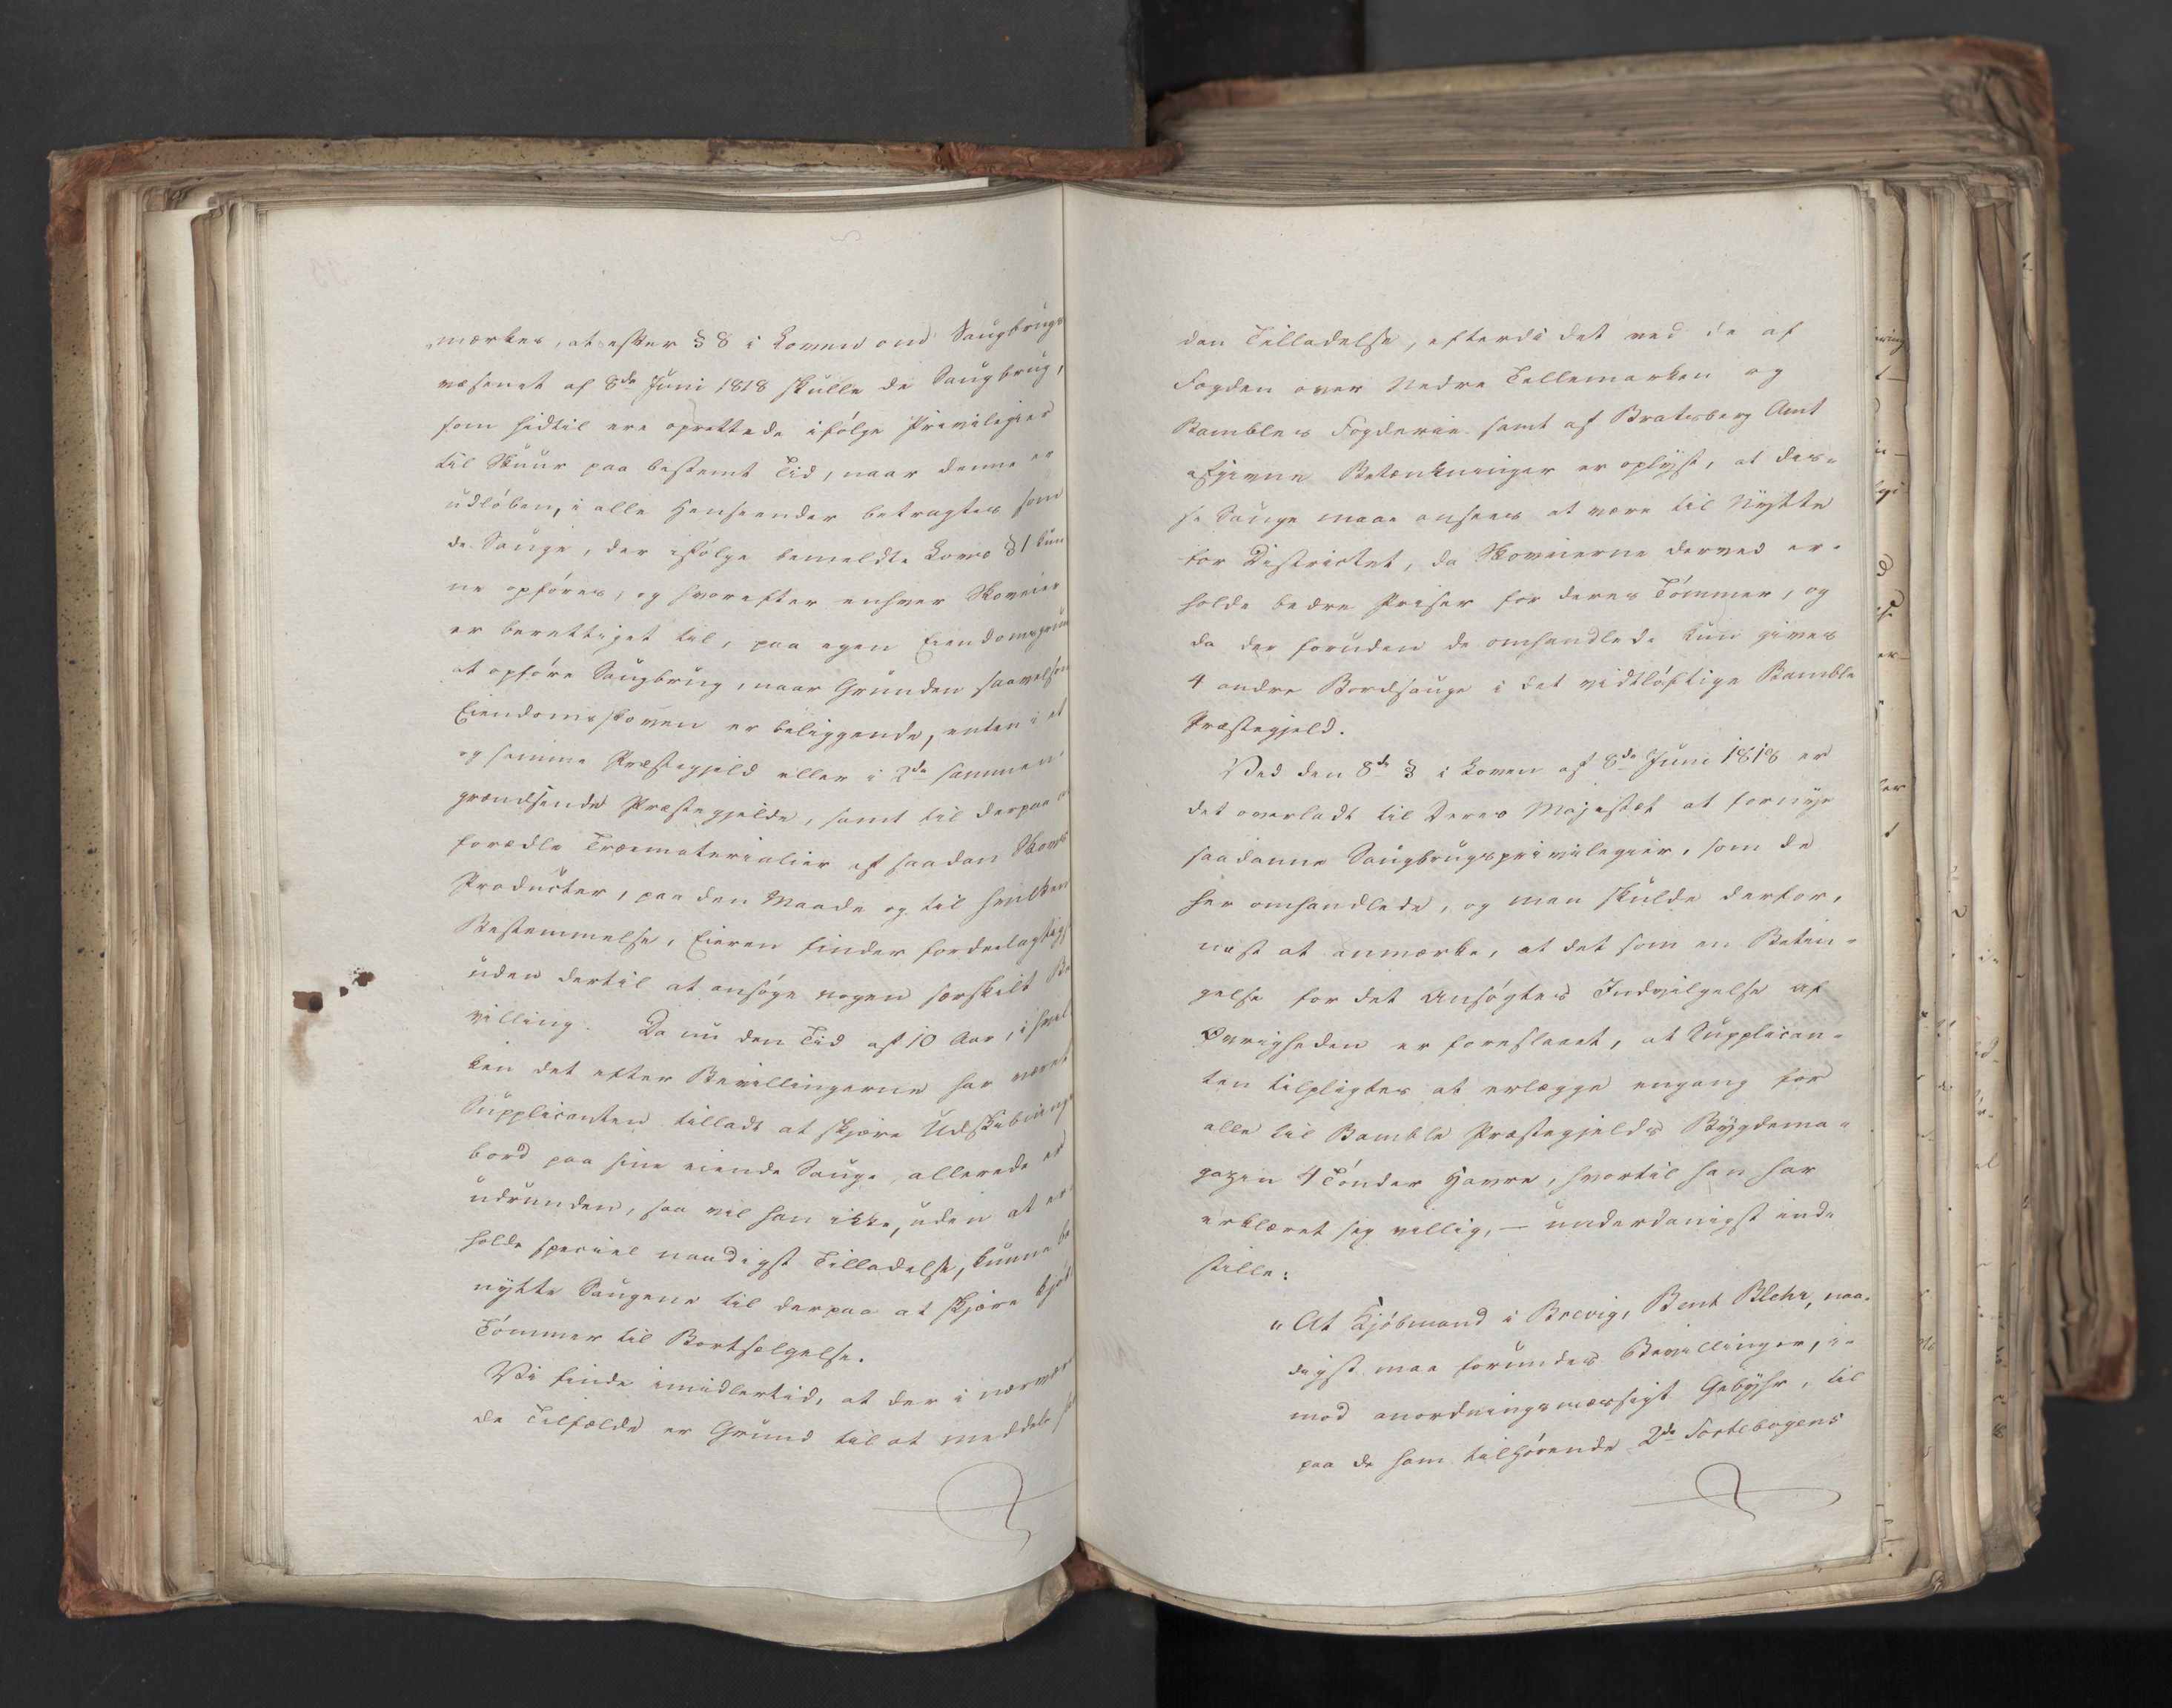 mærkes, at efter § 8 i Loven om Saugbrugs
væsenet af 8de Juni 1818 skulle de Saugbrug,
som hidtil ere oprettede ifølge Privilegier
til Skuur paa bestemt Tid, naar denne er
udløben, i alle Henseender betragtes som
de Sauge, der ifølge bemeldte Lovs § 1 kun
ne opføres, og hvorefter enhver Skoveier
er berettiget til, paa egen Eiendomsgrun
at opføre Saugbrug, naar Grunden saavelsom
Eiendomsskoven er beliggende, enten i et
og samme Præstegjeld eller i 2de sammen
grændsende Præstegjelde, samt til derpaa at
forædle Træmaterialier af saadan Skovs
Producter, paa den Maade og til hvilken
Bestemmelse, Eieren finder fordeelagtigst
uden dertil at ansøge nogen særskilt Be
villing. Da nu den Tid af 10 Aar, i hvil
ken det efter Bevillingerne har været
Supplicanten tilladt at skjære Udskibnings
bord paa sine eiende Sauge, allerede er
udrunden, saa vil han ikke, uden at er
holde speciel naadigst Tilladelse, kunne be
nytte Saugene til derpaa at skjære kjøbt
Tømmer til Bortsælgelse.
Vi finde imidlertid, at der i nærvæ
de Tilfælde er Grund til at meddele
dan Tilladelse, efterdi det ved de af
Fogden over Nedre Tellemarken og
Bambles Fogderie samt af Bratsberg Amt
afgivne Betænkninger er oplyst, at dis-
se Sauge maae ansees at være til Nytte
for Districtet, da Skoveierne derved er-
holde bedre Priser for deres Tømmer, og
da der foruden de omhandlede kun gives
4 andre Bordsauge i det vidtløftige Bamble
Præstegjeld.
Ved den 8de § i Loven af 8de Juni 1818 er
det overladt til Deres Majestæt at fornye
saadanne Saugbrugsprivilegier, som de
her omhandlede, og man skulde derfor,
næst at anmærke, at det som en Betin-
gelse for det Ansøgtes Indvilgelse af
Øvrigheden er foreslaaet, at Supplican-
ten tilpligtes at erlægge engang for
alle til Bamble Præstegjelds Bygdema-
gazin 4 Tønder Havre, hvortil han har
erklæret sig villig, — underdanigst inde
stille:
"At Kjøbmand i Brevig, Bent Blehr, naa-
digst maa forundes Bevillinger, i-
mod anordningsmæssigt Gebyhr, til
paa de ham tilhørende 2de Tostebogens